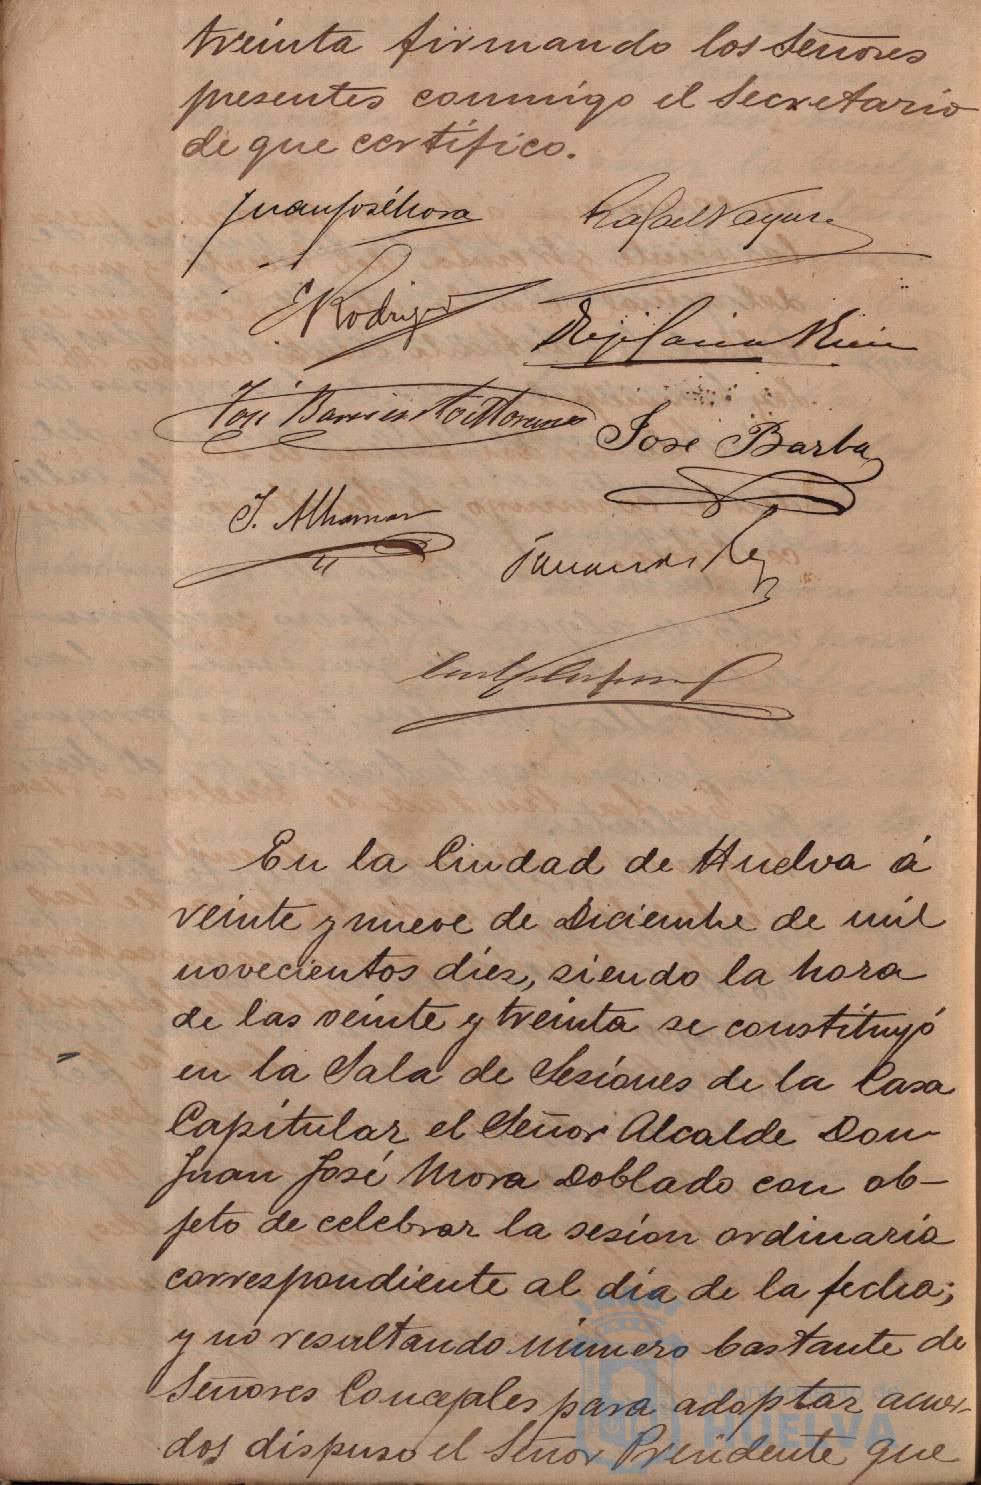 treinta firmando los Señores
presentes conmigo el Secretario
de que certifico.
Juan José Mora
Rafael
E Rodrig
José
José Barba
J. Alhamar
En la Ciudad de Huelva á
veinte y nueve de Diciembre de mil
novecientos diez, siendo la hora
de las veinte y treinta se constituyó
en la Sala de Sesiones de la Casa
Capitular el Señor Alcalde Don
Juan José Mora Doblado con ob-
jeto de celebrar la sesión ordinaria
correspondiente al día de la fecha;
y no resultando número bastante de
Señores Concejales para adoptar acuer-
dos dispuso el Señor Presidente que
Ayuntamiento de
HUELVA